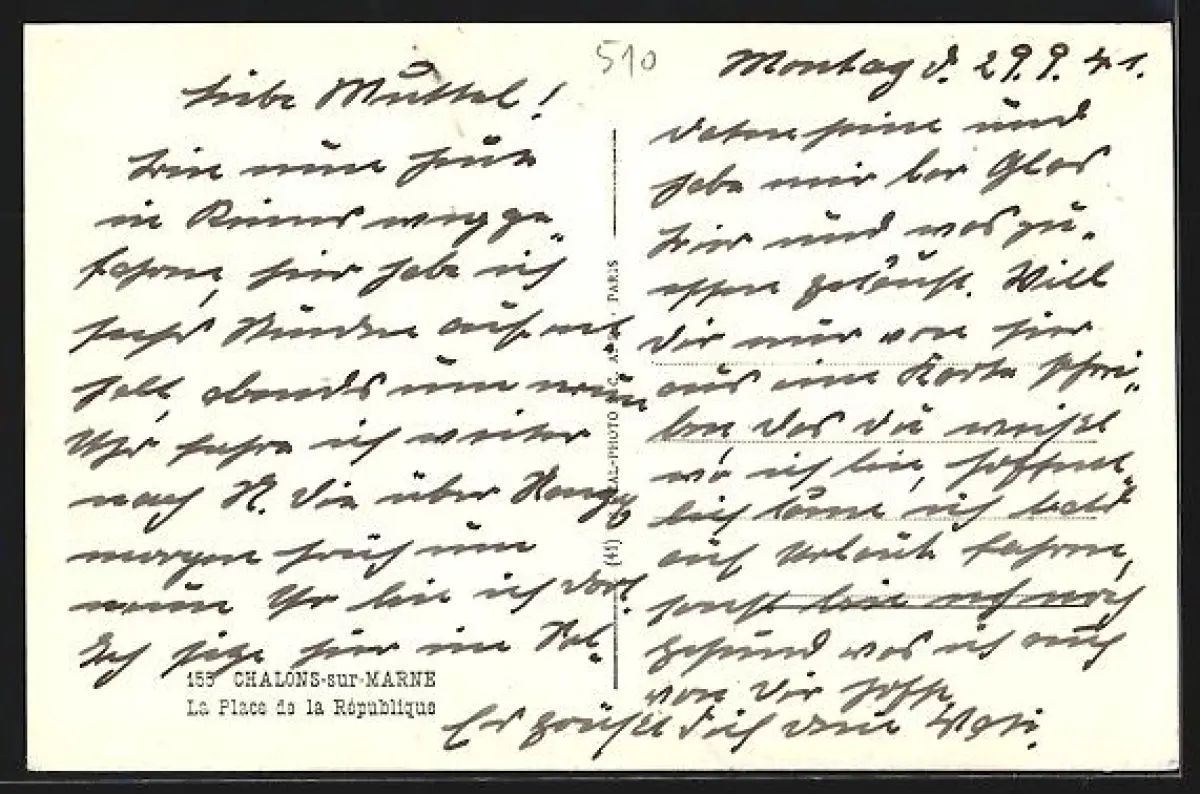 510
Montag d. 29.9.41.
Liebe Muttel!
Bin nun heute
in Reims wegge-
fahren, hier habe ich
sechs Stunden aufent
halt, abends um neun
Uhr fahre ich weiter
nach N. die über
morgen früh um
neun Uhr bin ich dort.
Ich sitze hier im
und
habe mir ber Glas
Bier und was zu-
essen gekauft. Will
dir nur von hier
aus eine Karte schrei-
ben das du weißt
wo ich bin, hoffent
lich kann ich bald
auf Urlaub fahren,
sonst bin ich noch
gesund was ich auch
von Dir hoffe.
Es grüßt dich dein
155 CHALONS-sur-MARNE
La Place de la République
(41) REAL-PHOTO C. A. P. PARIS